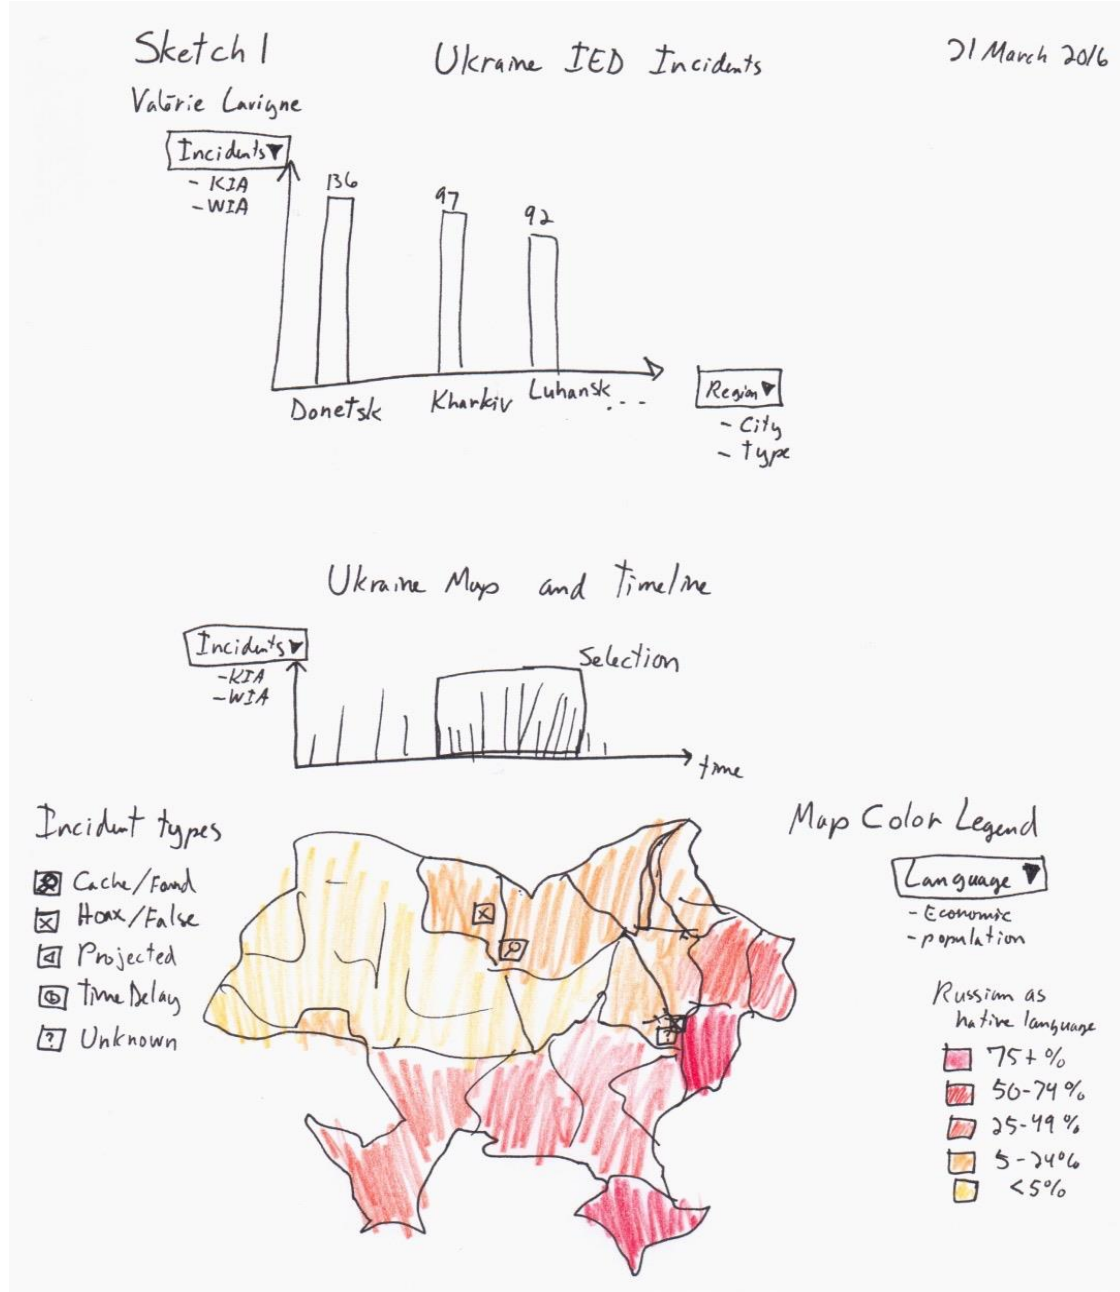 Sketch 1
Ukraine IED Incidents
21 March 2016
Valérie Lavigne
Incidents
- KIA
- WIA
136
97
92
Donetsk
Kharkiv
Luhansk
...
Region
- City
- Type
Ukraine Map and Timeline
Incidents
- KIA
- WIA
Selection
time
Incident types
Cache/Found
Hoax/False
Projected
Time Delay
? Unknown
Map Color Legend
Language
- Economic
- population
Russian as
native language
75+%
50-74%
25-49%
5-24%
<5%